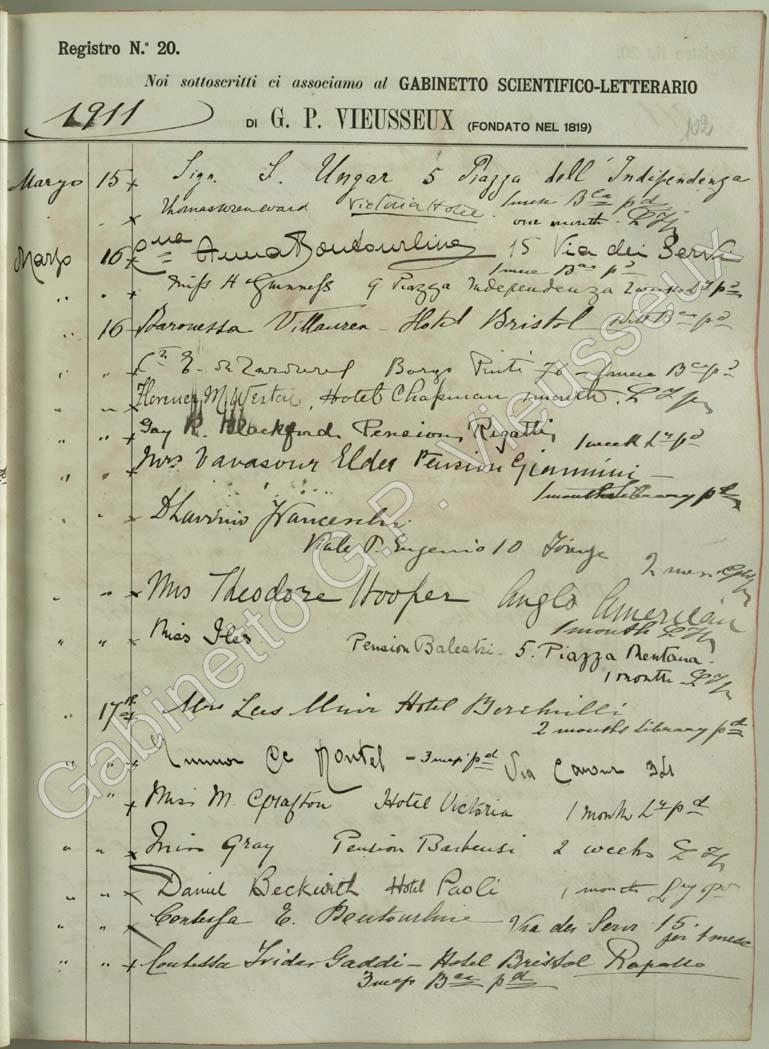 Registro N.° 20.
Noi sottoscritti ci associamo al GABINETTO SCIENTIFICO-LETTERARIO
1911
DI G. P. VIEUSSEUX (FONDATO NEL 1819)
102
Marzo 15 x Sign. S. Ungar 5 Piazza dell'Indipendenza
1 mese Bca pd
" x Thomas Wren Ward Victoria Hotel
one month
Marzo 16 x Anna Boutourline 15 Via dei Servi
1 mese Bca pd
" " x Miss H Guinness 9 Piazza Indipendenza 2 weeks Ly pd
" 16 x Baronessa Hotel Bristol
" " x Borgo Pinti 76 - 1 mese Bca pd
" " x Florence M. Weston, Hotel Chapman 1 month.
" " x Gay R. Blackford Pension Rigatti 1 week Ly pd
" " x Mrs Vavasour Elder Pension Giannini
1 months Library pd
" " x Franceschi
Viale P. Eugenio 10 Firenze
2 mesi
" " x Mrs Theodore Hooper Anglo American
1 month
" " x Miss Iles. Pension Balestri. 5. Piazza Mentana.
1 month
" 17 x Mrs Muir Hotel
2 months Library pd
" " x 3 mesi pd Via Cavour 34
" x Miss M. Grafton Hotel Victoria 1 month Ly pd
" " x Miss Gray Pension Barbensi 2 weeks
" " Daniel Beckwith Hotel Paoli 1 month
" " Contessa E. Boutourline Via dei Servi 15
per 1 mese
" " x Contessa Gaddi - Hotel Bristol Rapallo
3 mesi Bca pd
Gabinetto G.P. Vieusseux